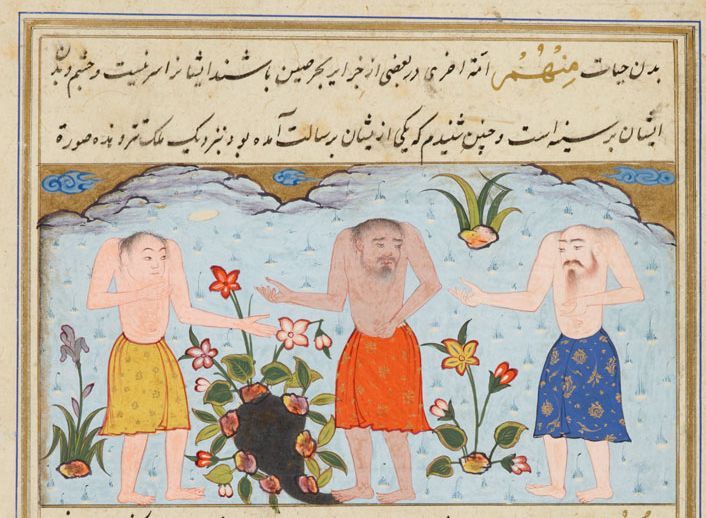 بدن حیات منهم امة اخری در بعضی از جزایر بحر صین باشند ایشانرا سر نیست و چشم و
ایشان بر سینه است و چنین شنیدم که یکی از ایشان برسالت آمده بود بنزدیک ملک تتر صورة